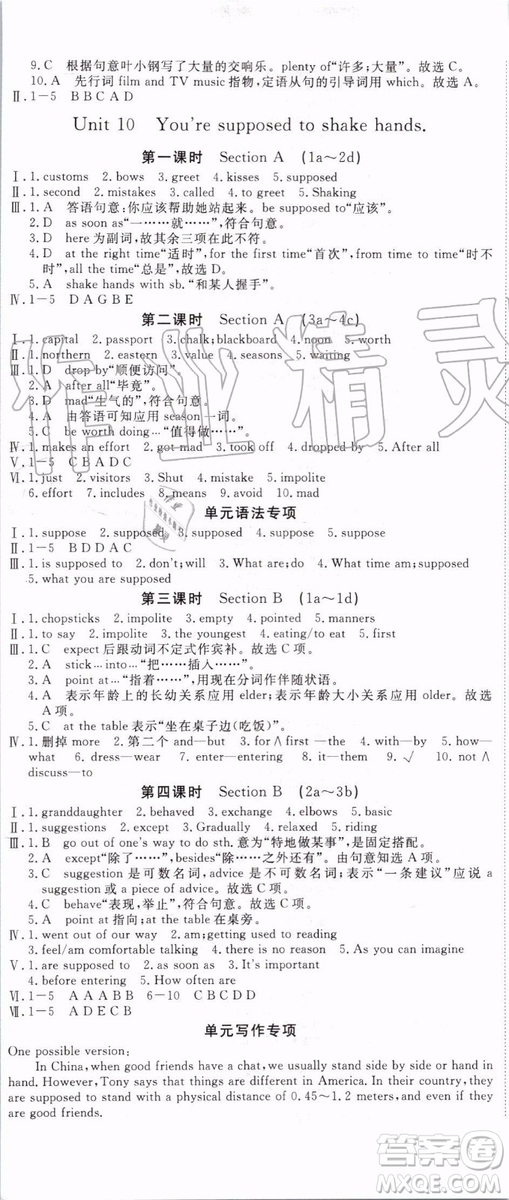 9. C 根据句意叶小钢写了大量的交响乐。plenty of“许多;大量”。故选 C。
10. A 先行词 film and TV music 指物,定语从句的引导词用 which。故选 A。
Ⅱ. 1-5 B B C A D
Unit 10 You're supposed to shake hands.
第一课时 Section A (1a~2d)
Ⅰ. 1. customs 2. bows 3. greet 4. kisses 5. expected
Ⅱ. 1. second 2. mistakes 3. called 4. to greet 5. Shaking
Ⅲ. 1. A 答语句意:你应该帮助她站起来。be supposed to“应该”。
2. D as soon as“一……就……”,符合句意。
3. D here 为副词,故其余三项在此不符。
4. D at the right time“适时”,for the first time“首次”,from time to time“时不
时”,all the time“总是”,故选 D。
5. A shake hands with sb.“和某人握手”。
Ⅳ. 1-5 D A G B E
第二课时 Section A (3a~4c)
Ⅰ. 1. capital 2. passport 3. chalk;blackboard 4. noon 5. worth
Ⅱ. 1. northern 2. eastern 3. value 4. seasons 5. waiting
Ⅲ. 1. D drop by“顺便访问”。
2. A after all“毕竟”。
3. D mad“生气的”,符合句意。
4. A 由答语可知应用 season 一词。
5. C be worth doing…“值得做……”。
Ⅳ. 1. makes an effort 2. got mad 3. took off 4. dropped by 5. After all
Ⅴ. 1-5 C B A D C
Ⅵ. 1. just 2. visitors 3. Shut 4. mistake 5. impolite
6. effort 7. includes 8. means 9. avoid 10. mad
单元语法专项
Ⅰ. 1. suppose 2. suppose 3. supposed 4. suppose 5. supposed
Ⅱ. 1-5 B D D A C
Ⅲ. 1. is supposed to 2. don't;will 3. What am 4. What time am;supposed
5. what you are supposed
第三课时 Section B (1a~1d)
Ⅰ. 1. chopsticks 2. impolite 3. empty 4. pointed 5. manners
Ⅱ. 1. to say 2. impolite 3. the youngest 4. eating/to eat 5. at
Ⅲ. 1. C expect 后跟动词不定式作宾补。故选 C 项。
2. A stick…into…“把……插入……”。
3. A point at…“指着……”,为分词作伴随状语。
4. A 表示年龄上的长幼关系应用 elder;表示年龄大小关系应用 older。故选 A 项。
5. C at the table 表示“坐在桌子边(吃饭)”。
Ⅳ. 1. 删掉 more 2. 第二个 and—but 3. for∧first —the 4. with—by 5. how—
what 6. dress—wear 7. enter—entering 8. it—them 9. √ 10. not ∧
discuss—to
第四课时 Section B (2a~3b)
Ⅰ. 1. granddaughter 2. behaved 3. exchange 4. elbows 5. basic
Ⅱ. 1. suggestions 2. except 3. Gradually 4. relaxed 5. riding
Ⅲ. 1. B go out of one's way to do sth. 意为“特地做某事”,是固定搭配。
2. A except“除了……”,besides“除……之外还有”。由句意知应选 A 项。
3. C suggestion 是可数名词,advice 是不可数名词,表示“一条建议”应说 a
suggestion 或 a piece of advice。故选 C 项。
4. C behave“表现,举止”,符合句意。
5. A point at 指向;at table 在桌旁。
Ⅳ. 1. went out of our way 2. am;getting used to reading
3. feel/am comfortable talking 4. there is no reason 5. As you can imagine
Ⅴ. 1. are supposed to 2. as soon as 3. It's important
4. before entering 5. How often are
Ⅵ. 1-5 A A A B B 6-10 C B C D D
Ⅶ. 1-5 A D E B C
单元写作专项
One possible version:
In China, when good friends have a chat, we usually stand side by side or hand in
hand. However, Tony says that things are different in America. In their country, they
are supposed to stand with a physical distance of 0.45~1.2 meters, and even if they
are good friends.
作业精灵
答案圈